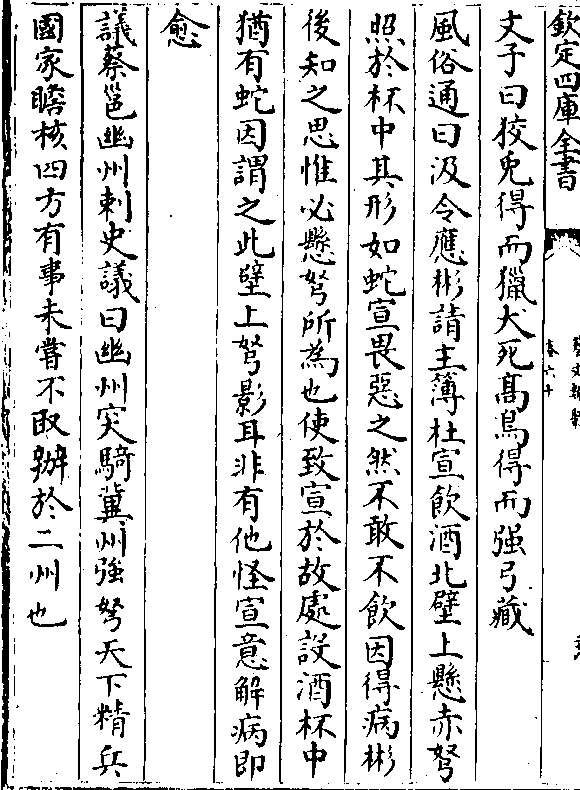 欽定四庫全書
卷六十
文子曰狡兎得而獵犬死髙鳥得而强弓藏
風俗通曰汲令應彬請主簿杜宣飲酒北壁上懸赤弩
照於杯中其形如蛇宣畏惡之然不敢不飲因得病彬
後知之思惟必懸弩所為也使致宣於故處設酒杯中
猶有蛇因謂之此壁上弩影耳非有他怪宣意解病即
愈
議蔡邕幽州刺史議曰幽州突騎冀州強弩天下精兵
國家贍核四方有事未嘗不取辦於二州也